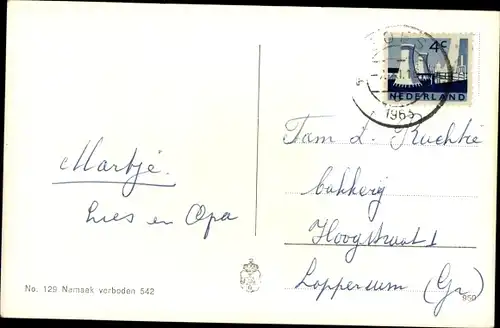 4c
NEDERLAND
1963
Martje.
Lies en Opa
Fam L.
bakkerij
Hoogstraat 1
Loppersum (Gr.)
No. 129 Namaak verboden 542
950